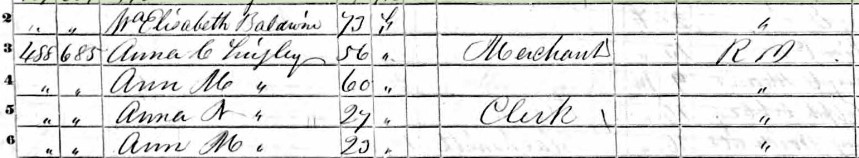 2 " " Elisabeth Baldwin 73 " "
3 488 685 Anna C Lingley 56 " Merchant R I
4 " " Ann M " 60 " "
5 " " Anna " 27 " Clerk "
6 " " Ann M " 23 " "